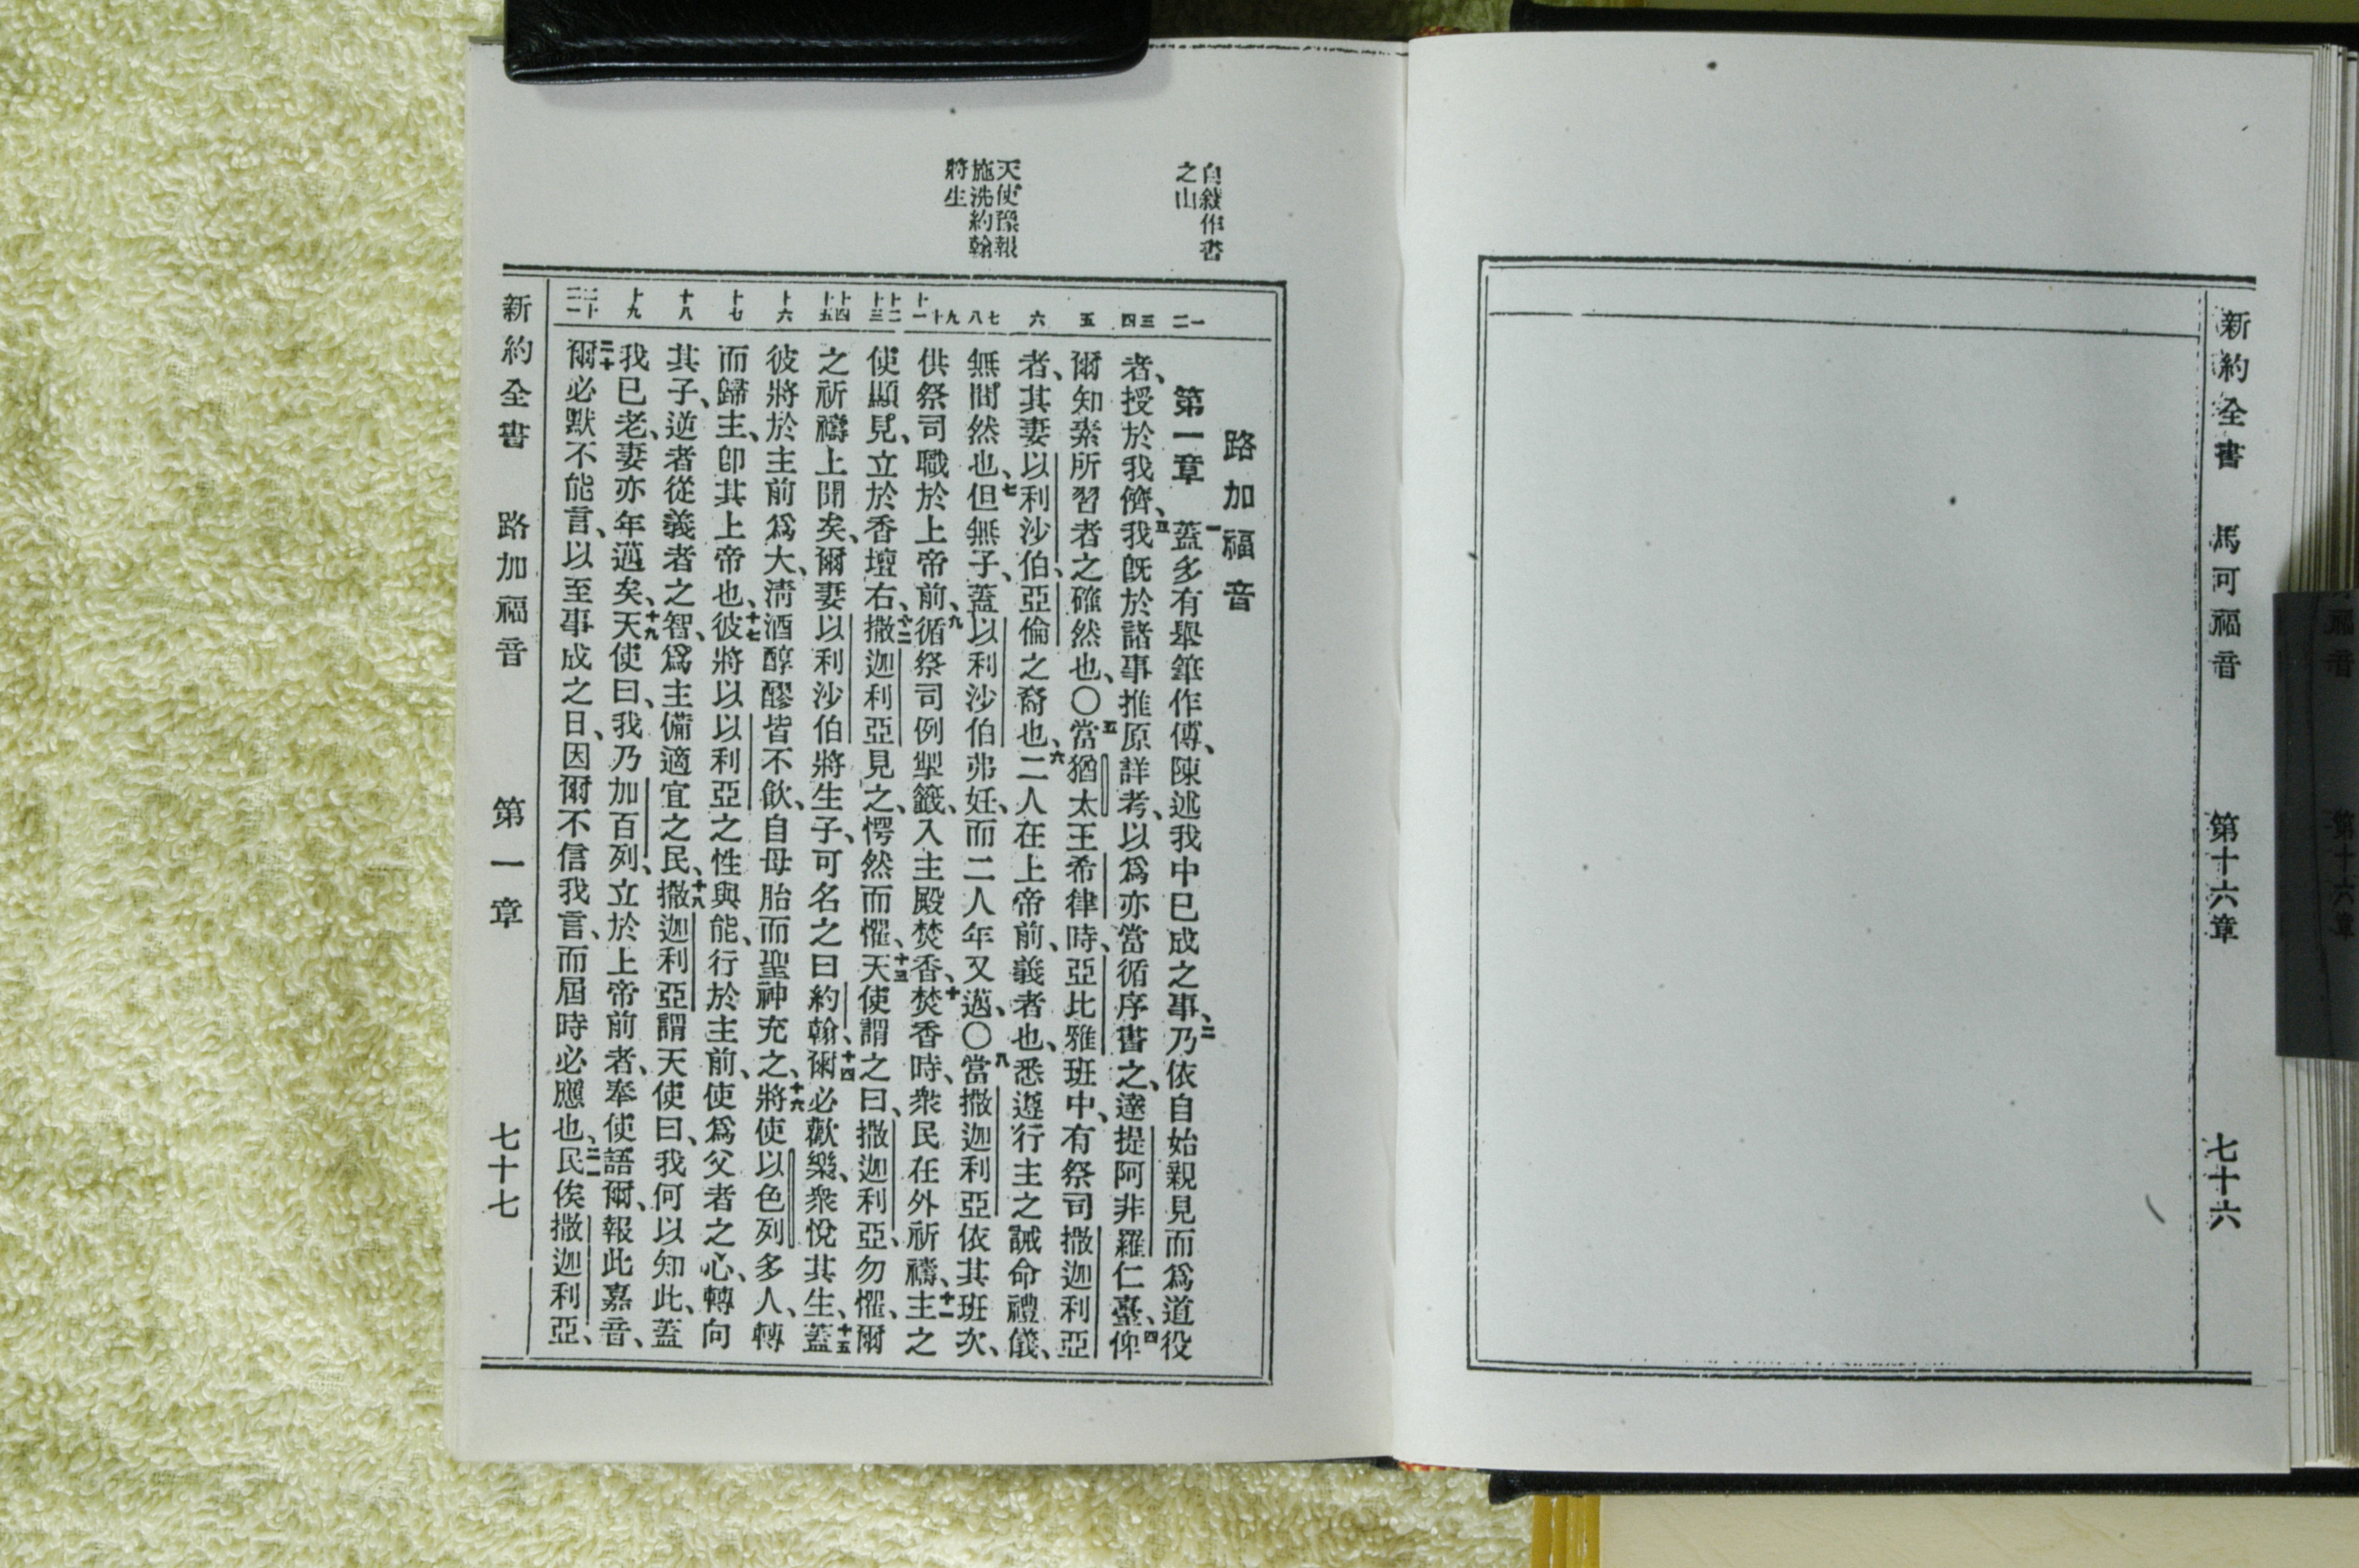 新約全書 馬可福音 第十六章 七十六
自敍作書
之由
天使豫報
施洗約翰
將生
一二 三四 五 六 七八 九十十一 十二十三 十四十五 十六 十七 十八 十九 二十二一
路加福音
第一章 一蓋多有舉筆作傳、陳述我中已成之事、二乃依自始親見而爲道役
者、授於我儕、三我旣於諸事推原詳考、以爲亦當循序書之、達提阿非羅仁臺、四俾
爾知素所習者之確然也、〇五當猶太王希律時、亞比雅班中、有祭司撒迦利亞
者、其妻以利沙伯、亞倫之裔也、六二人在上帝前、義者也、悉遵行主之誡命禮儀、
無間然也、七但無子、蓋以利沙伯弗妊、而二人年又邁、〇八當撒迦利亞依其班次、
供祭司職於上帝前、九循祭司例掣籤、入主殿焚香、十焚香時、衆民在外祈禱、十一主之
使顯見、立於香壇右、十二撒迦利亞見之、愕然而懼、十三天使謂之曰、撒迦利亞、勿懼、爾
之祈禱上聞矣、爾妻以利沙伯將生子、可名之曰約翰、十四爾必歡樂、衆悅其生、十五蓋
彼將於主前爲大、淸酒醇醪皆不飮、自母胎而聖神充之、十六將使以色列多人、轉
而歸主、卽其上帝也、十七彼將以以利亞之性與能、行於主前、使爲父者之心、轉向
其子、逆者從義者之智、爲主備適宜之民、十八撒迦利亞謂天使曰、我何以知此、蓋
我已老、妻亦年邁矣、十九天使曰、我乃加百列、立於上帝前者、奉使語爾、報此嘉音、
二十爾必默不能言、以至事成之日、因爾不信我言、而屆時必應也、二一民俟撒迦利亞、
新約全書 路加福音 第一章 七十七